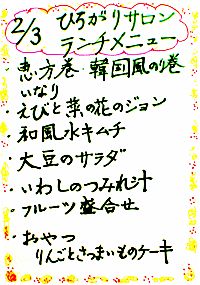 2/3 ひろがりサロン
ランチメニュー
・恵方巻・韓国風のり巻
いなり
・えびと菜の花のジョン
・和風水キムチ
・大豆のサラダ
・いわしのつみれ汁
・フルーツ盛合せ
・おやつ
りんごとさつまいものケーキ